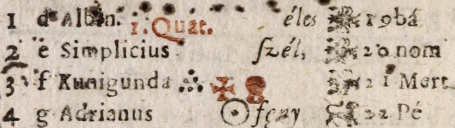 1 d Albin. 1. Quat. éles 19 bá
2 e Simplicius szél, 20 nom
3 f Kunigunda 21 Mert
4 g Adrianus feny 22 Pé